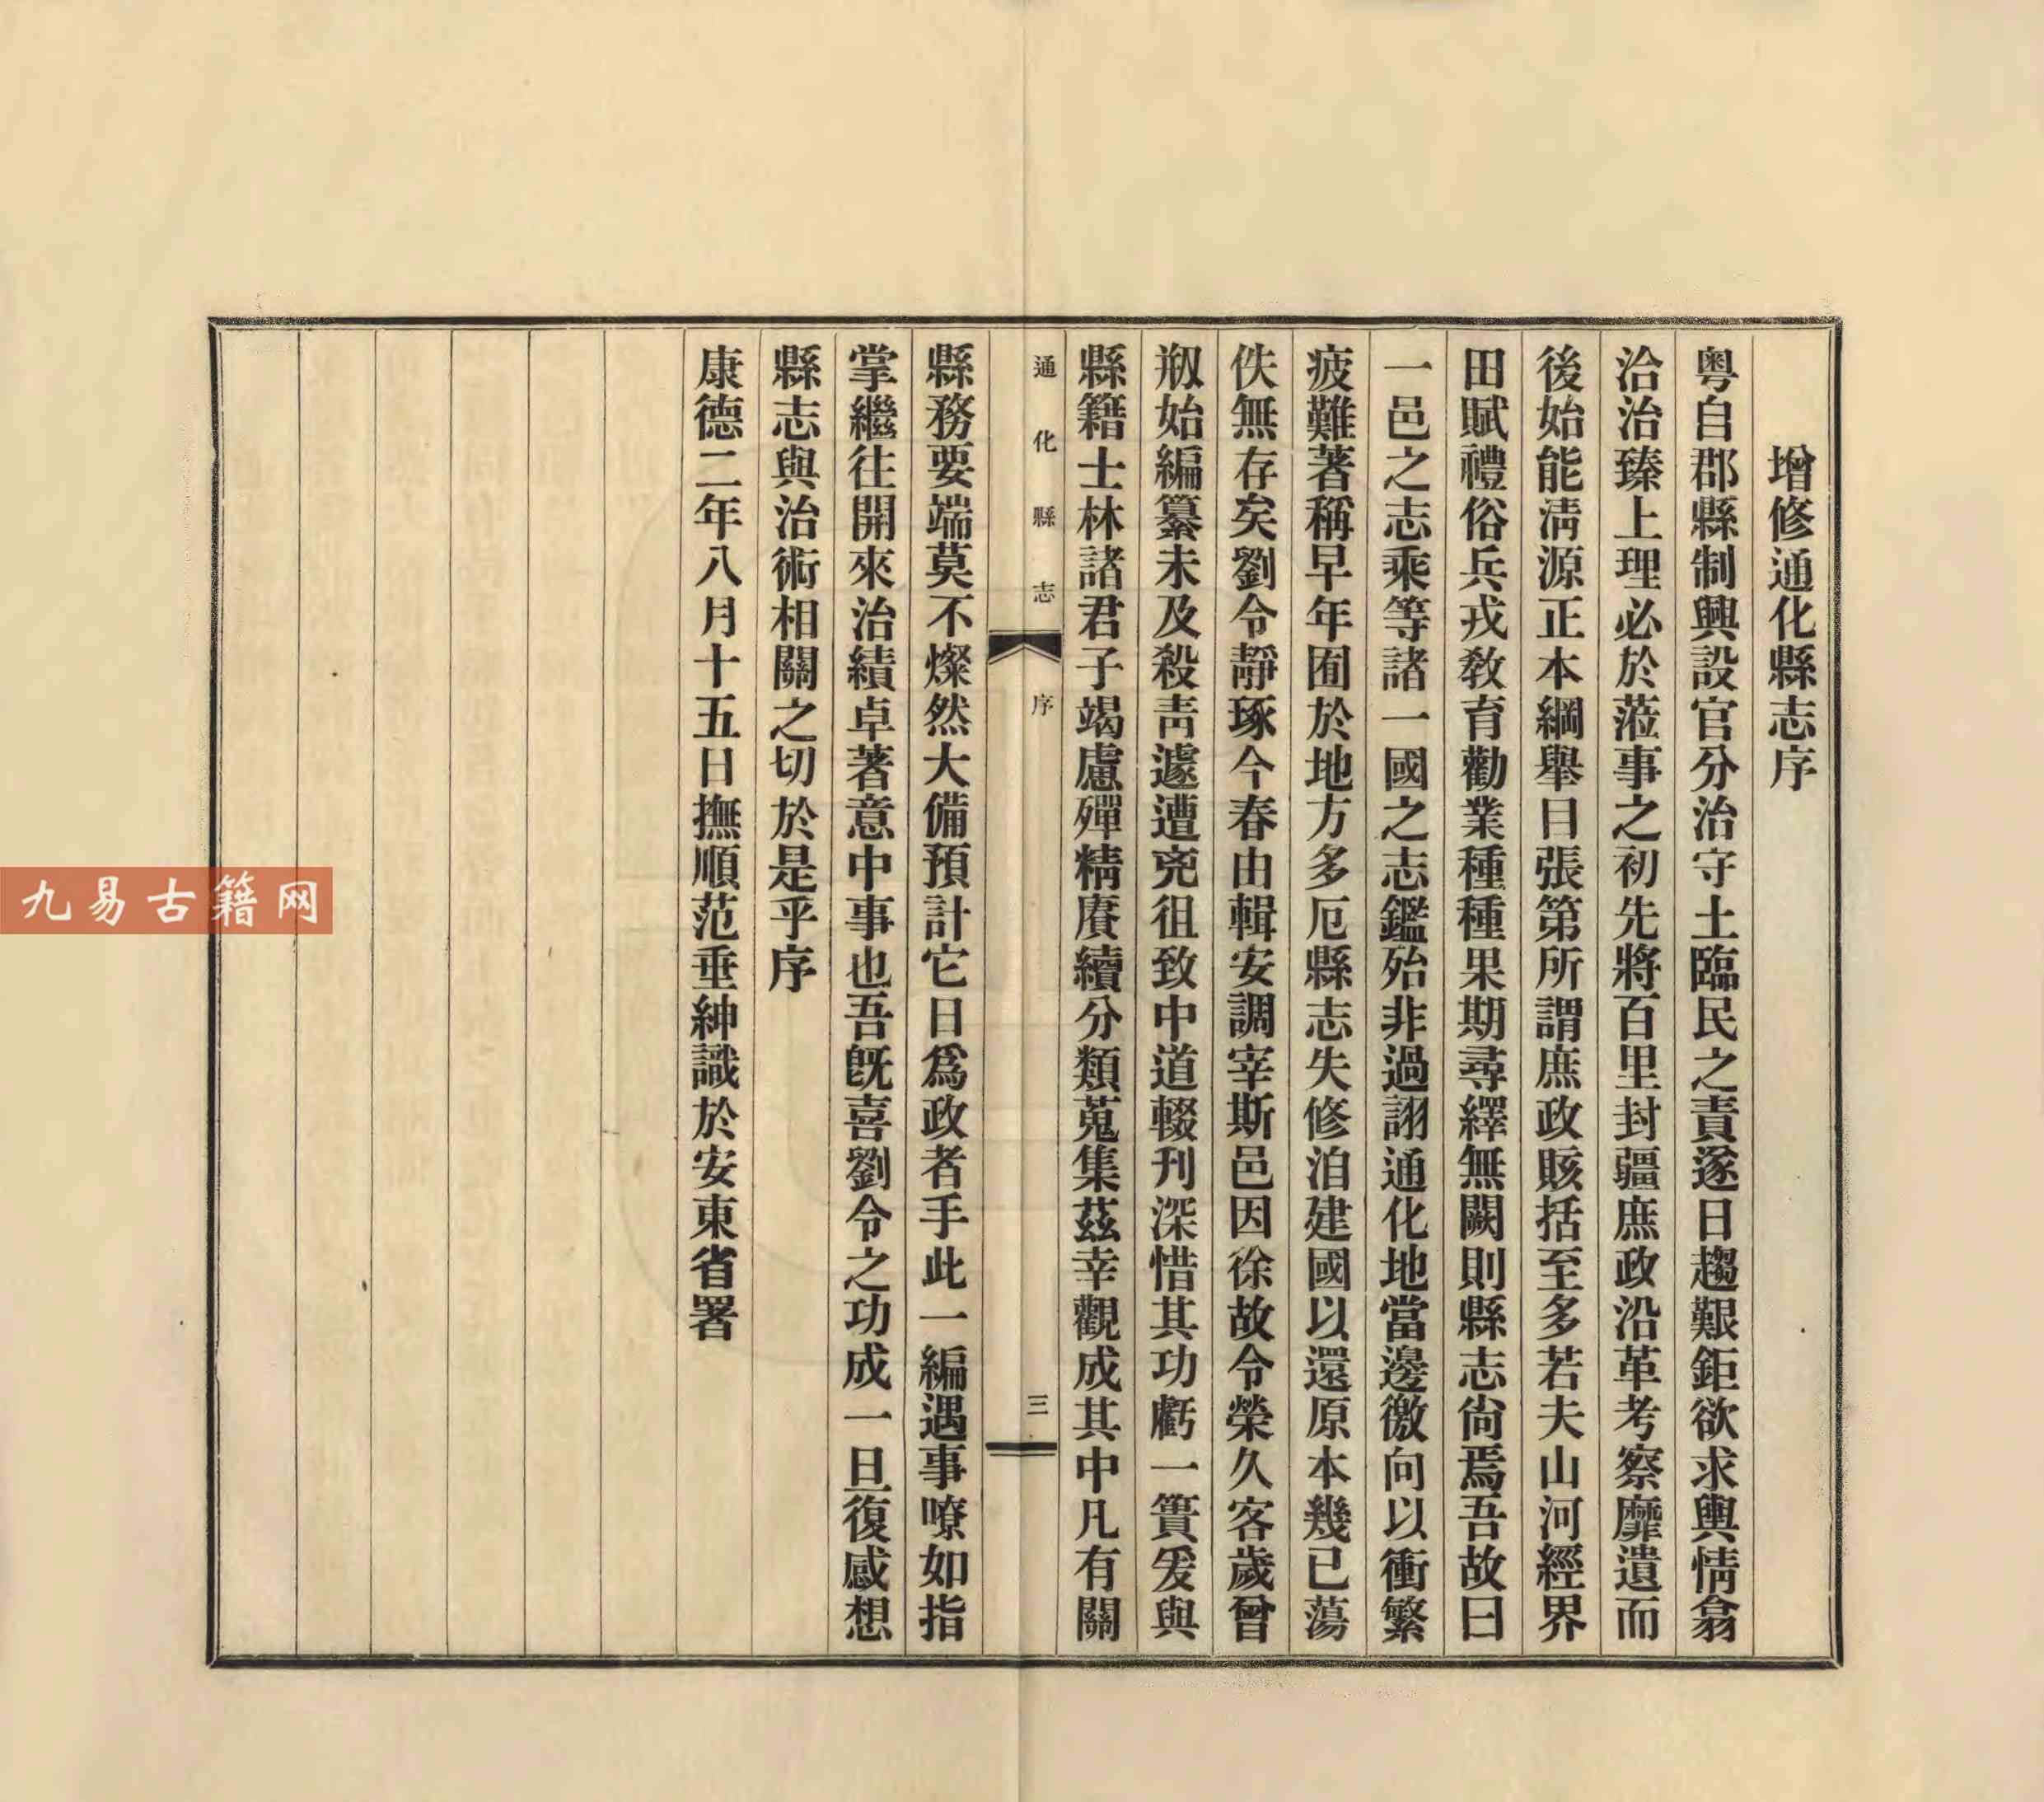 增修通化縣志序
粤自郡縣制興設官分治守土臨民之責遂日趨艱鉅欲求輿情翕
洽治臻上理必於蒞事之初先將百里封疆庶政沿革考察靡遺而
後始能淸源正本綱舉目張第所謂庶政賅括至多若夫山河經界
田賦禮俗兵戎敎育勸業種種果期尋繹無闕則縣志尙焉吾故曰
一邑之志乘等諸一國之志鑑殆非過詡通化地當邊徼向以衝繁
疲難著稱早年囿於地方多厄縣志失修洎建國以還原本幾已蕩
佚無存矣劉令靜琢今春由輯安調宰斯邑因徐故令榮久客歲曾
剏始編纂未及殺靑遽遭兇徂致中道輟刊深惜其功虧一簣爰與
縣籍士林諸君子竭慮殫精賡續分類蒐集茲幸觀成其中凡有關
通化縣志
序
三
縣務要端莫不燦然大備預計它日爲政者手此一編遇事瞭如指
掌繼往開來治績卓著意中事也吾旣喜劉令之功成一旦復感想
縣志與治術相關之切於是乎序
康德二年八月十五日撫順范垂紳識於安東省署
九易古籍网